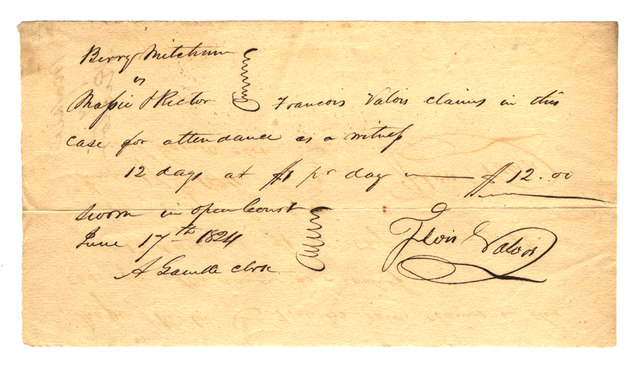 Berry Mitchum
vs
Massie & Rector Francois Valois claims in this
case for attendance as a witness
12 days at $1 pr day — $12.00
Sworn in open Court
June 17th 1824
A Gamble clerk
Fcois Valois